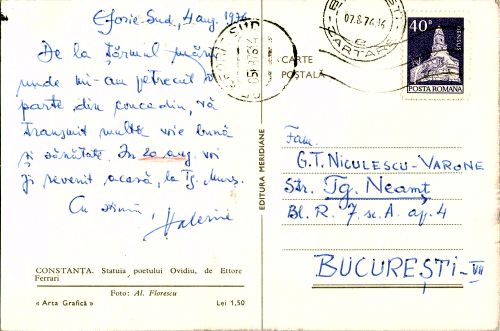 Eforie-Sud, 4 aug. 1976
De la țărmul mării
unde mi-am petrecut o
parte din concediu, vă
transmit multe voie bună
și sănătate. În 20 aug. voi
fi revenit acasă, la Tg. Mureș.
Cu stimă,
CONSTANȚA. Statuia poetului Ovidiu, de Ettore
Ferrari
Foto: Al. Florescu
« Arta Grafică »
Lei 1,50
EDITURA MERIDIANE
CARTE
POȘTALĂ
07.8.76.14
40B
POSTA ROMANA
Fam.
G.T. NICULESCU-VARONE
Str. Tg. Neamț
Bl. R. 7, sc. A ap. 4
BUCUREȘTI-VII